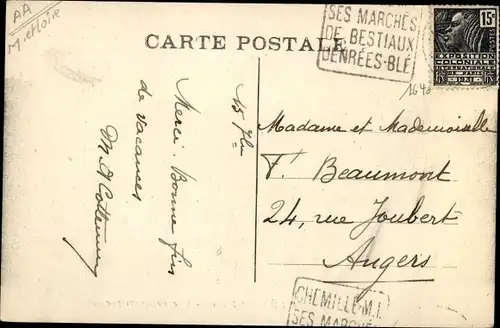 AA
M. et Loire
CARTE POSTALE
SES MARCHÉS
DE BESTIAUX
DENRÉES-BLÉ
15c
EXPOSITION
COLONIALE
INTERNATIONALE
PARIS 1931
15 7bre
Merci. Bonne fin
de vacances
Madame et Mademoiselle
F. Beaumont
24, rue Joubert
Angers
CHEMILLÉ-M.L.
SES MARCHÉS